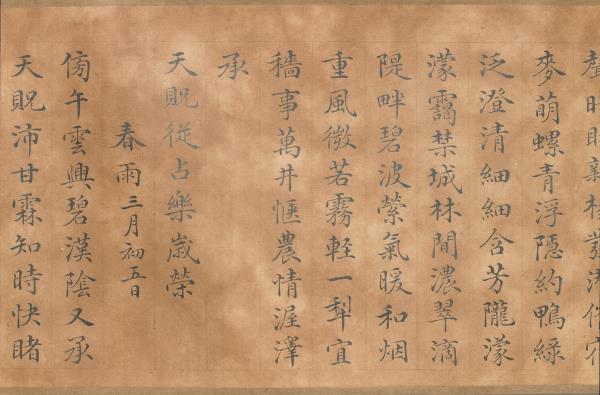 麥萌螺青浮隱約鴨綠
泛澄清細細含芳隴濛
濛靄禁城林間濃翠滴
隄畔碧波縈氣暖和烟
重風微若霧輕一犂宜
穡事萬井愜農情渥澤
承
天貺從占樂歲榮
春雨三月初五日
傍午雲興碧漢陰又承
天貺沛甘霖知時快睹